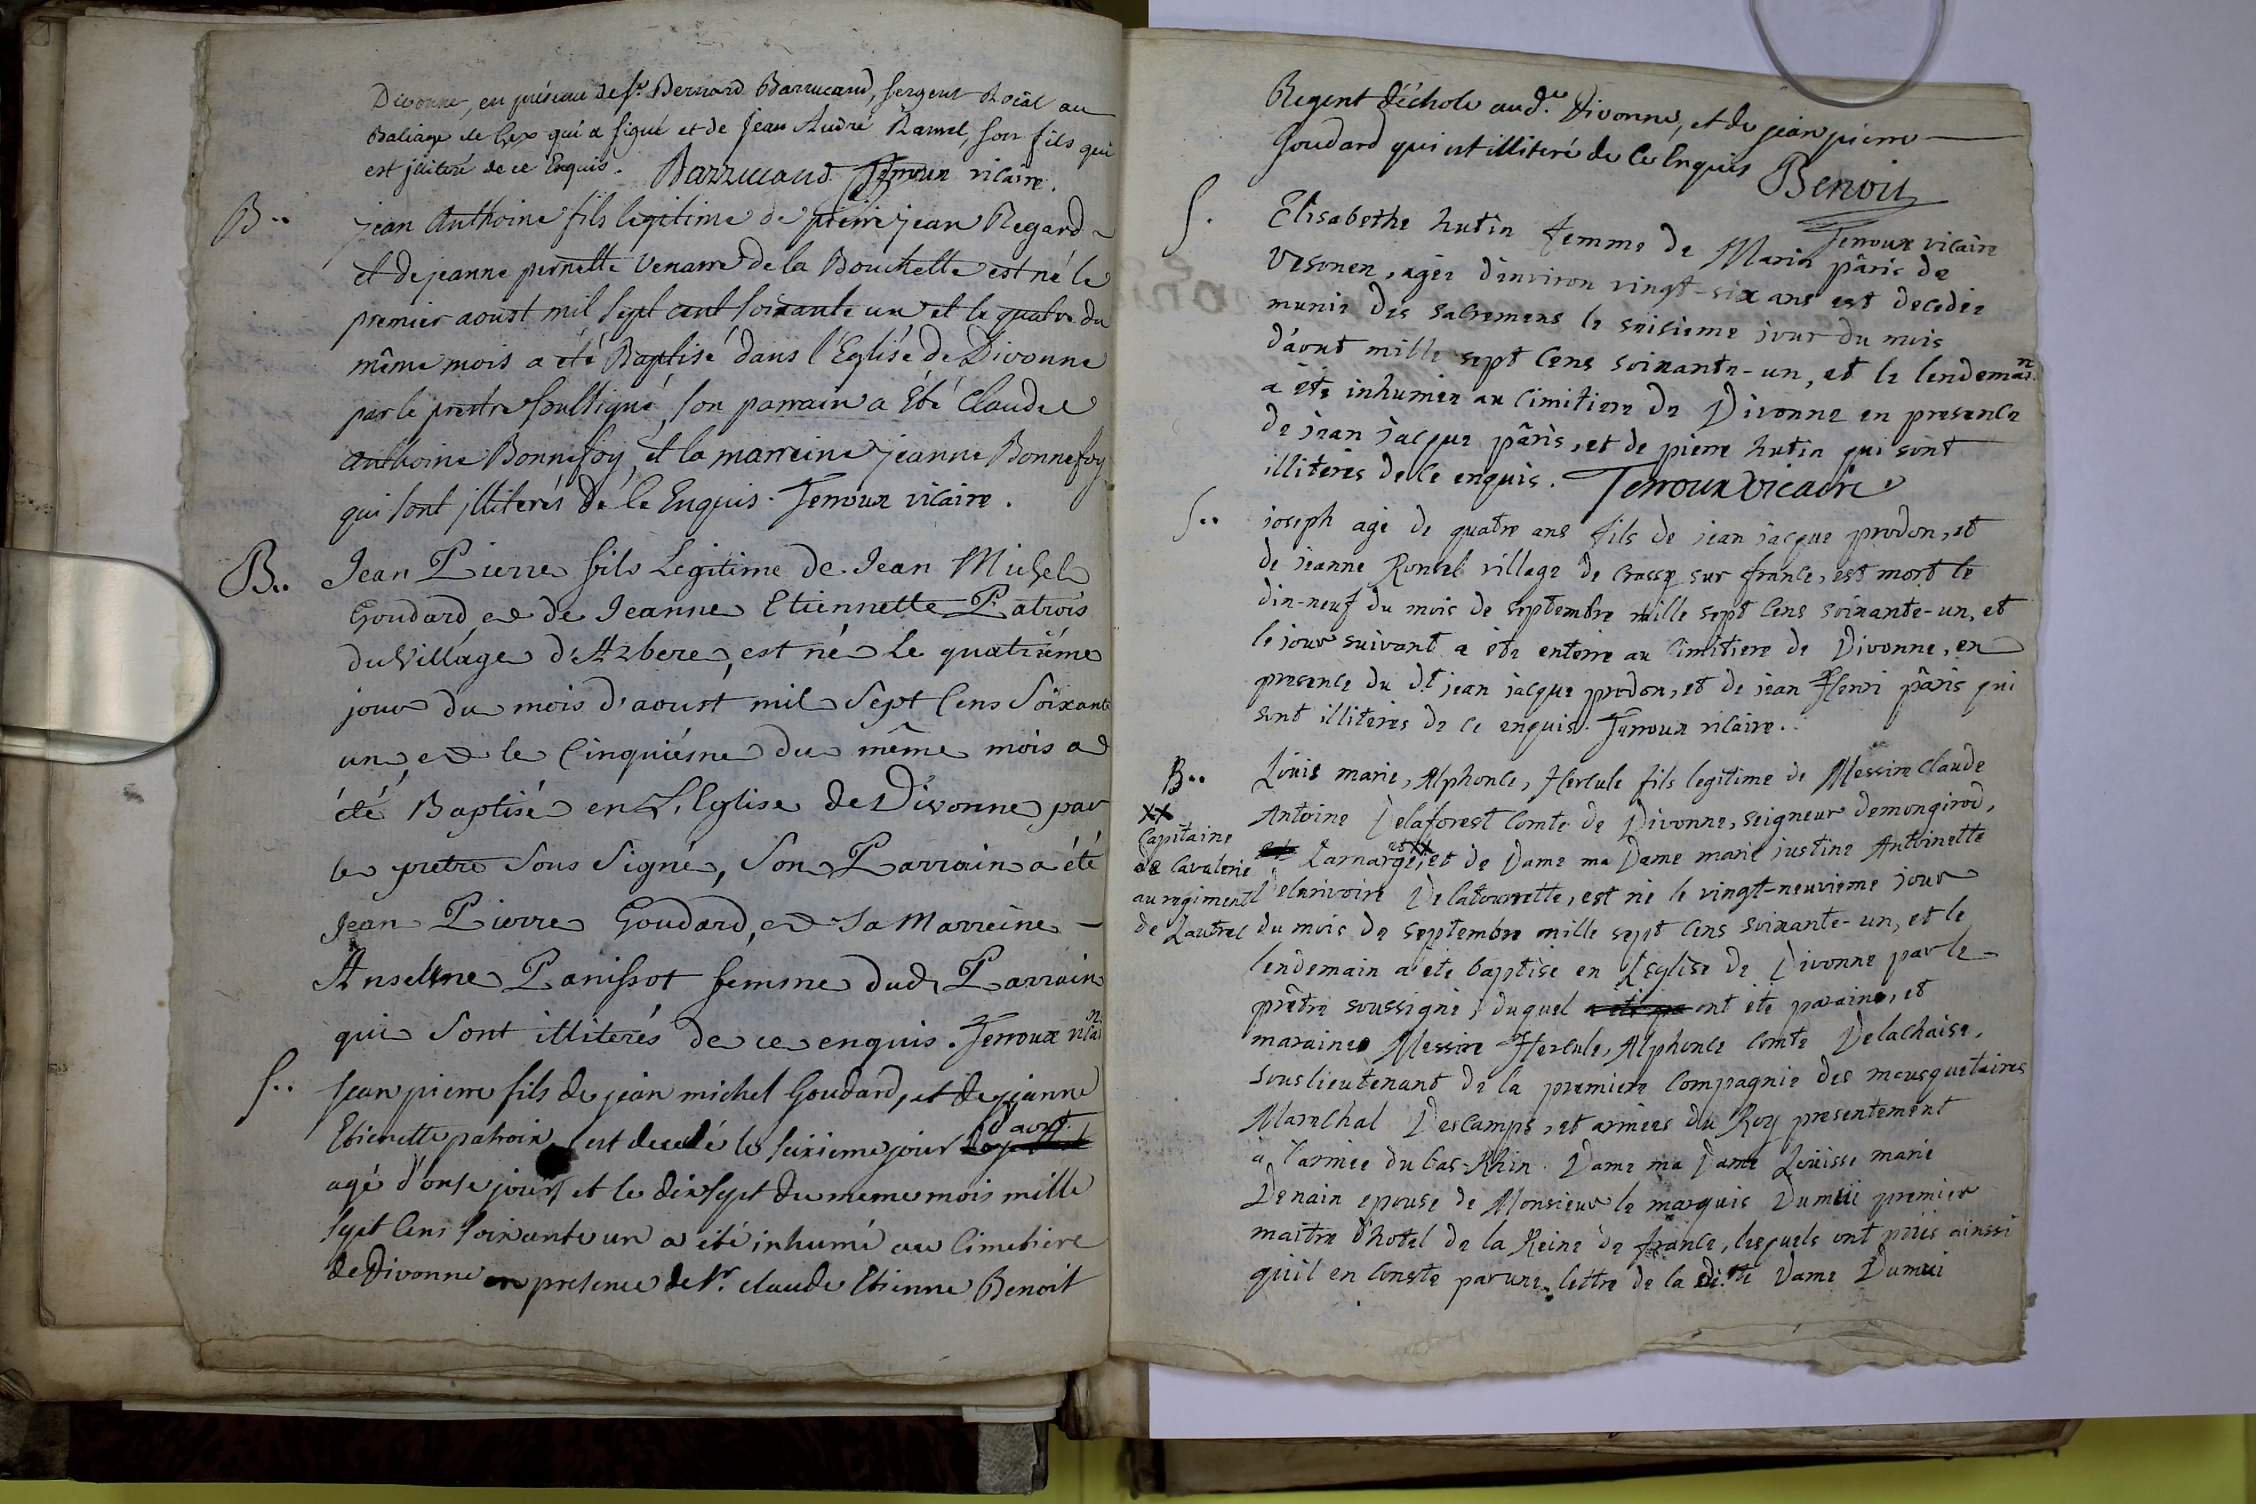 Divonne, en présence de Sr. Bernard Barrucand, sergent Roïal au
Baliage de Gex qui a signé et de Jean André Ramel, son fils qui
est jlliteré de ce Enquis. Barrucand Terroux vicaire.
B..
jean Anthoine fils legitime de pierre jean Regard
et de jeanne pernette Venarre de la Bouchette est né le
premier aoust mil sept cent soixante un et le quatre du
même mois a été Baptisé dans l'Eglise de Divonne
par le prestre soussigné, son parrain a Eté Claude
anthoine Bonnefoy, et la marreine jeanne Bonnefoy
qui sont jlliterés de Ce Enquis. Terroux vicaire.
B..
Jean Pierre fils Legitime de Jean Michel
Goudard et de Jeanne Etiennette Patrois
du Village d'Arbere, est né le quatriéme
jour du mois d'aoust mil Sept Cens Soixante
un, et le Cinquiésme du même mois a
été Baptisé en L'Eglise de Divonne par
le pretre Sous Signé, Son Parrain a été
Jean Pierre Goudard, et sa Marreine
Anselme Panissot femme dud. Parrain
qui Sont illiterés de ce enquis. Terroux vicai
S..
Jean pierre fils de jean michel Goudard, et de jeanne
Etienette patroix est decedé le seixieme jour d'aout
agé d'onse jours et le dixsept du meme mois mille
sept Cens soixante un a été inhumé au Cimetiere
de Divonne en presence de Sr. claude Etienne Benoit
Regent d'échole aud. Divonne, et de jean pierre
Goudard qui est illiteré de Ce Enquis Benoit
Terroux vicaire
S.
Elisabethe hutin femme de Marin pâris de
Vesonen, agée d'environ vingt-six ans est decedée
munie des sacremens le seisieme jour du mois
d'aout mille sept Cens soixante-un, et le lendemain
a été inhumée au Cimitiere de Divonne en presence
de jean jacque pâris, et de pierre hutin qui sont
illiterés de Ce enquis. Terroux vicaire
S..
joseph agé de quatre ans fils de jean jacque prodon, et
de jeanne Ronzel village de Crassy sur france, est mort le
dix-neuf du mois de septembre mille sept Cens soixante-un, et
le jour suivant a été enterré au Cimitiere de Divonne, en
presence du dt. jean jacque prodon, et de jean Henri pâris qui
sont illiterés de ce enquis. Terroux vicaire.
B..
Loüis marie, Alphonce, Hercule fils legitime de Messire Claude
Antoine Delaforest Comte de Divonne, seigneur demongirod,
et Lamarge, et XX et de Dame ma Dame marie justine Antoinette
Delarivoire Delatourrette, est né le vingt-neuvieme jour
du mois de septembre mille sept Cens soixante-un, et le
lendemain a été baptisé en L'Eglise de Divonne par le
prêtre soussigné, duquel a été pa ont été parains, et
maraines Messire Hercule, Alphonce Comte Delachaise,
souslieutenant de la premiere Compagnie des mousquetaires
Marechal Descamps, et armées du Roy presentement
à l'armée du bas-Rhin. Dame ma Dame Loüisse marie
Denain epouse de Monsieur le marquis Dumüi premier
maitre d'hotel de la Reine de france, lesquels ont priés ainssi
quil en Conste par une lettre de la dite Dame Dumui
XX
Capitaine
de Cavalerie
au regiment
de Lautrec